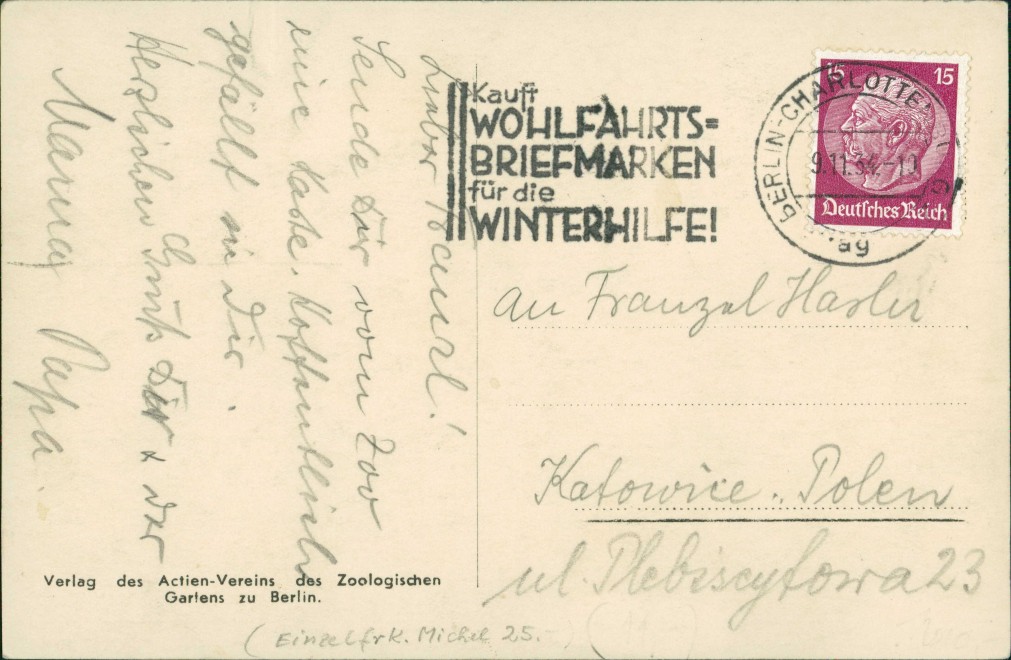 Kauft
WOHLFAHRTS=
BRIEFMARKEN
für die
WINTERHILFE!
BERLIN-CHARLOTTEN
9.11.34.-10
ag
15 15
Deutsches Reich
Lieber
Sende Dir vom Zoo
eine Karte. Hoffentlich
gefällt sie Dir.
Herzlichen Gruß Dir & der
Mama Papa.
An Franzel Hasler
Katowice. Polen
ul. Plebiscytowa 23
Verlag des Actien-Vereins des Zoologischen
Gartens zu Berlin.
(Einzelfrk. Michel 25.-)